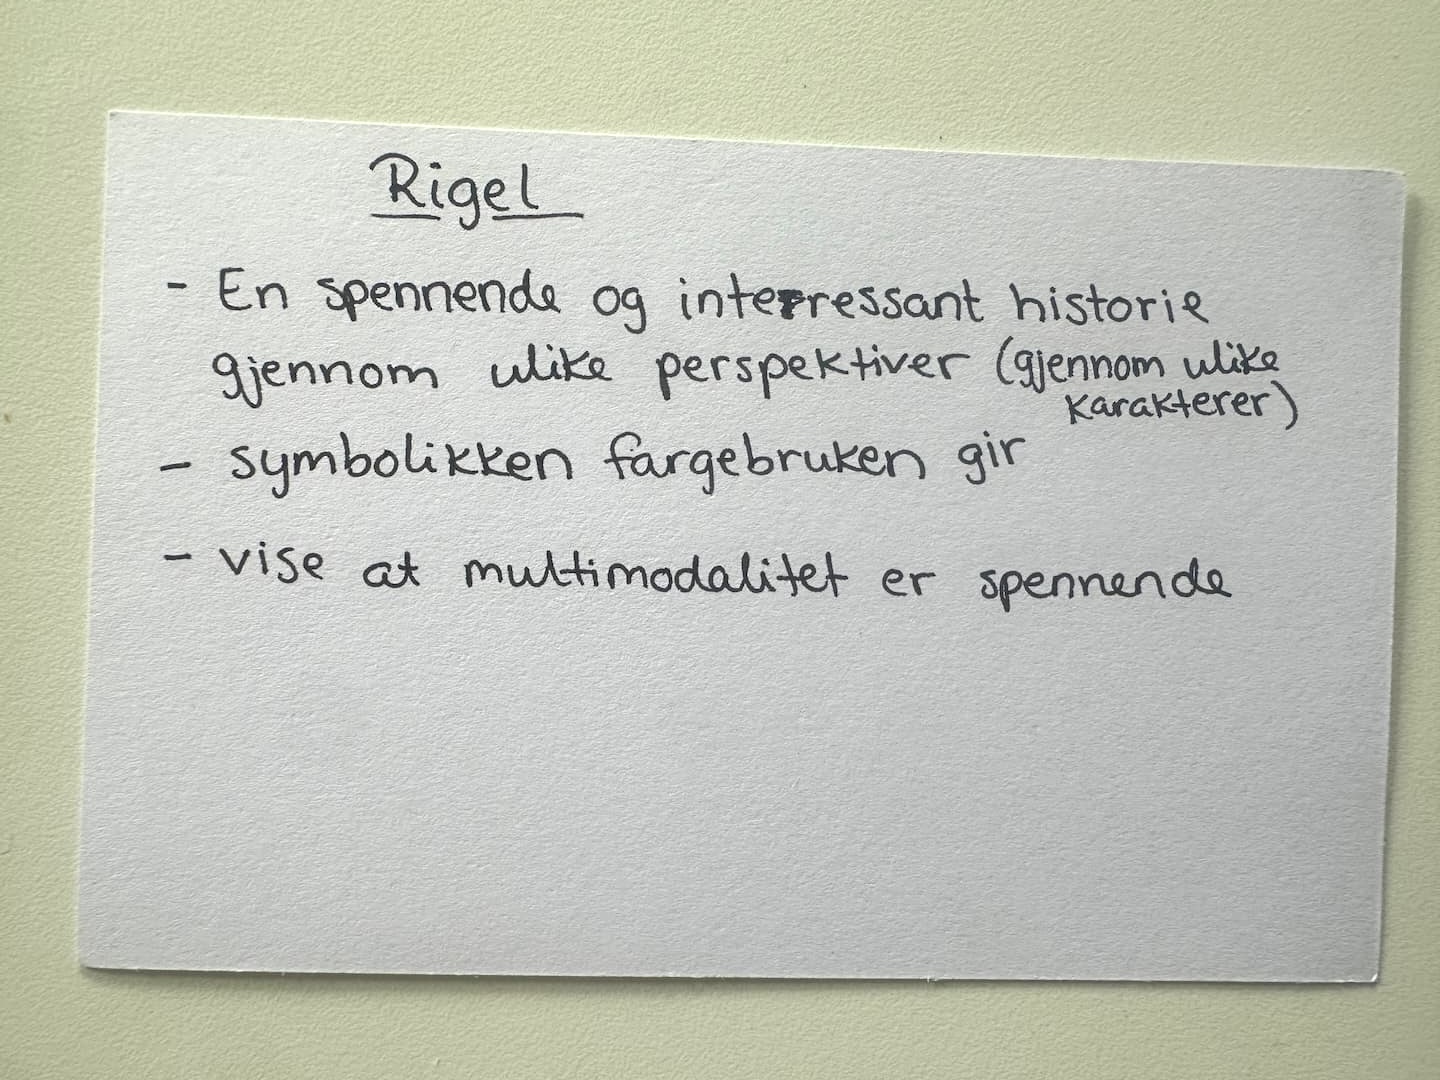 Rigel
- En spennende og interressant historie
gjennom ulike perspektiver (gjennom ulike
karakterer)
- symbolikken fargebruken gir
- vise at multimodalitet er spennende